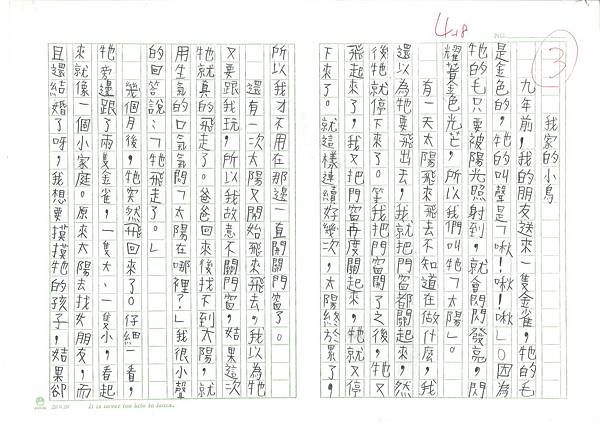 4.8
NO.
3
我家的小鳥
九年前,我的朋友送來一隻金雀,牠的毛
是金色的,牠的叫聲是「啾!啾!啾」。因為
牠的毛只要被陽光照射到,就會閃閃發亮,閃
耀黃金色光芒,所以我們叫牠「太陽」。
有一天太陽飛來飛去不知道在做什麼,我
還以為牠要飛出去,我就把門窗都關起來,然
後牠就停下來了。等我把門窗開了之後,牠又
飛起來了,我又把門窗再度關起來,牠就又停
下來了。就這樣連續好幾次,太陽終於累了,
所以我才不用在那邊一直開關門窗了。
還有一次太陽又開始飛來飛去,我以為牠
又要跟我玩,所以我故意不關門窗,姞果這次
牠就真的飛走了。爸爸回來後找不到太陽,就
用生氣的口氣問「太陽在哪裡?」我很小聲
的回答說:「牠飛走了。」
幾個月後,牠突然飛回來了。仔細一看,
牠旁邊跟了兩隻金雀,一隻大、一隻小,看起
來就像一個小家庭。原來太陽去找女朋友,而
且還結婚了呀,我想要摸摸牠的孩子,姞果卻
It is never too late to learn.